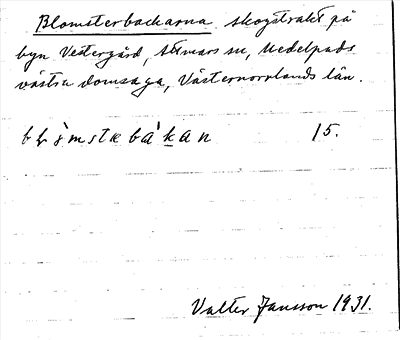 Blomsterbackarna skogstrakt på
byn Vestergård, Attmars sn, Medelpads
västra domsaga, Västernorrlands län.
15.
Valter Jansson 1931.